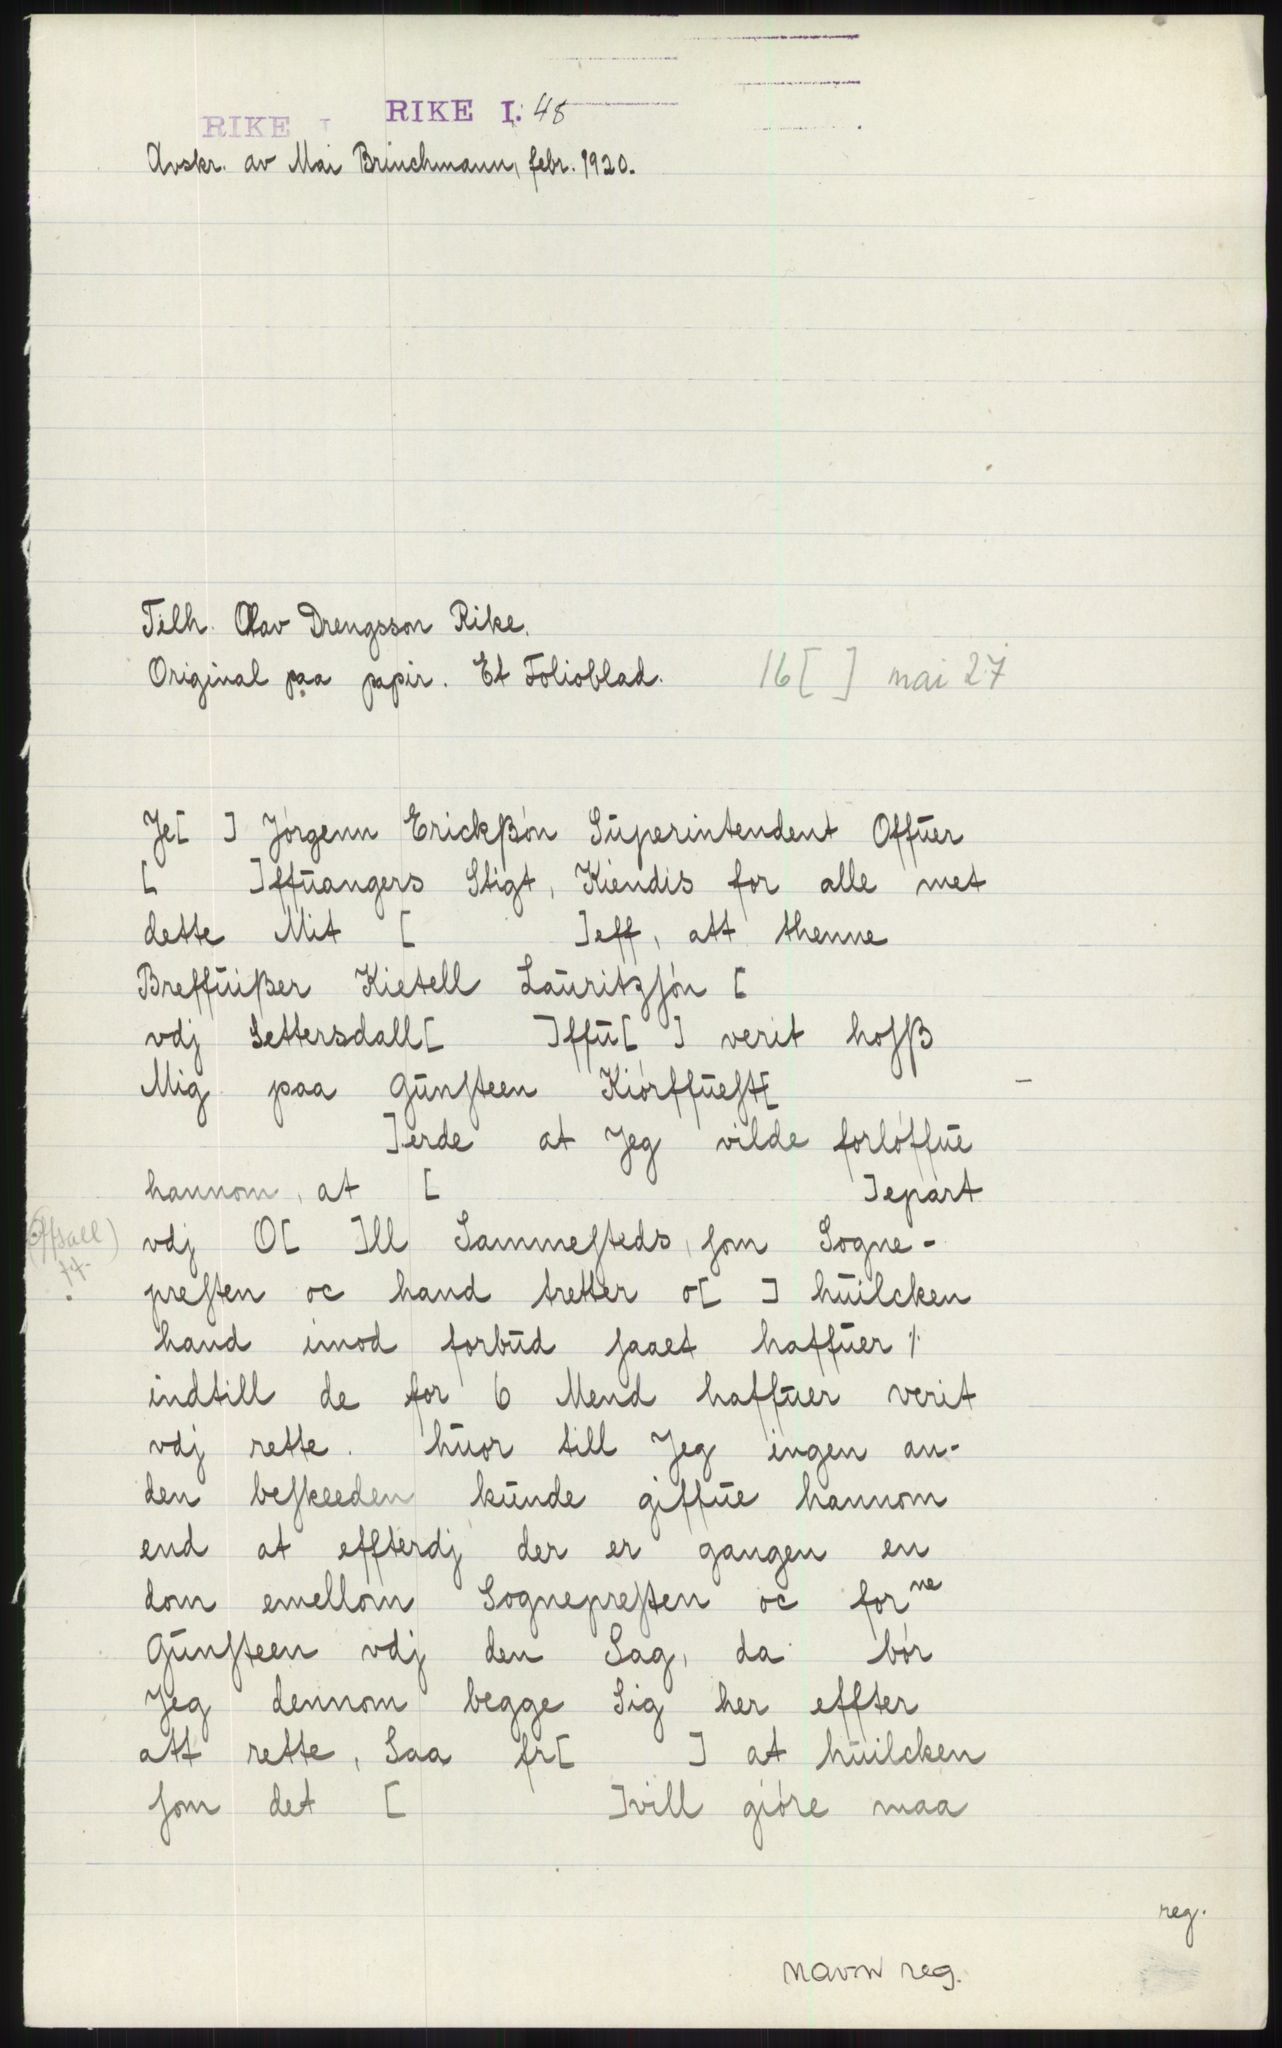 RIKE I RIKE I. 48
Avskr. av Mai Brinchmann, febr. 1920.
Tilh. Olav Drengsson Rike.
Original paa papir. Et Folioblad. 16[ ] mai 27
Je[ ] Jórgenn Erickßón Sūperintendent Offūer
[ ]ffūangers Stigt, Kiendis for alle met
dette Mit [ ]eff, att thenne
Breffūißer Kietell Laūritzſón [
vdj Settersdall[ ]ffū[ ] verit hoſß
Mig paa Gūnſteen Kiórffūeſt[
]erde at Jeg vilde forlóffūe
hannom, at [ ]epart
vdj O[ ]ll Sammeſteds, ſom Sogne-
preſten oc hand tretter o[ ] hūilcken
hand imod forbūd ſaaet haffūer /.
indtill de for 6 Mend haffūer verit
vdj rette. hūor till Jeg ingen an-
den beſkeeden kūnde giffūe hannom
end at effterdj der er gangen en
dom emellom Sognepreſten oc for ne
Gūnſteen vdj den Sag, da bór
Jeg dennom begge Sig her effter
att rette, Saa fr[ ] at hūilcken
ſom det [ ]vill gióre maa
reg.
navn reg.